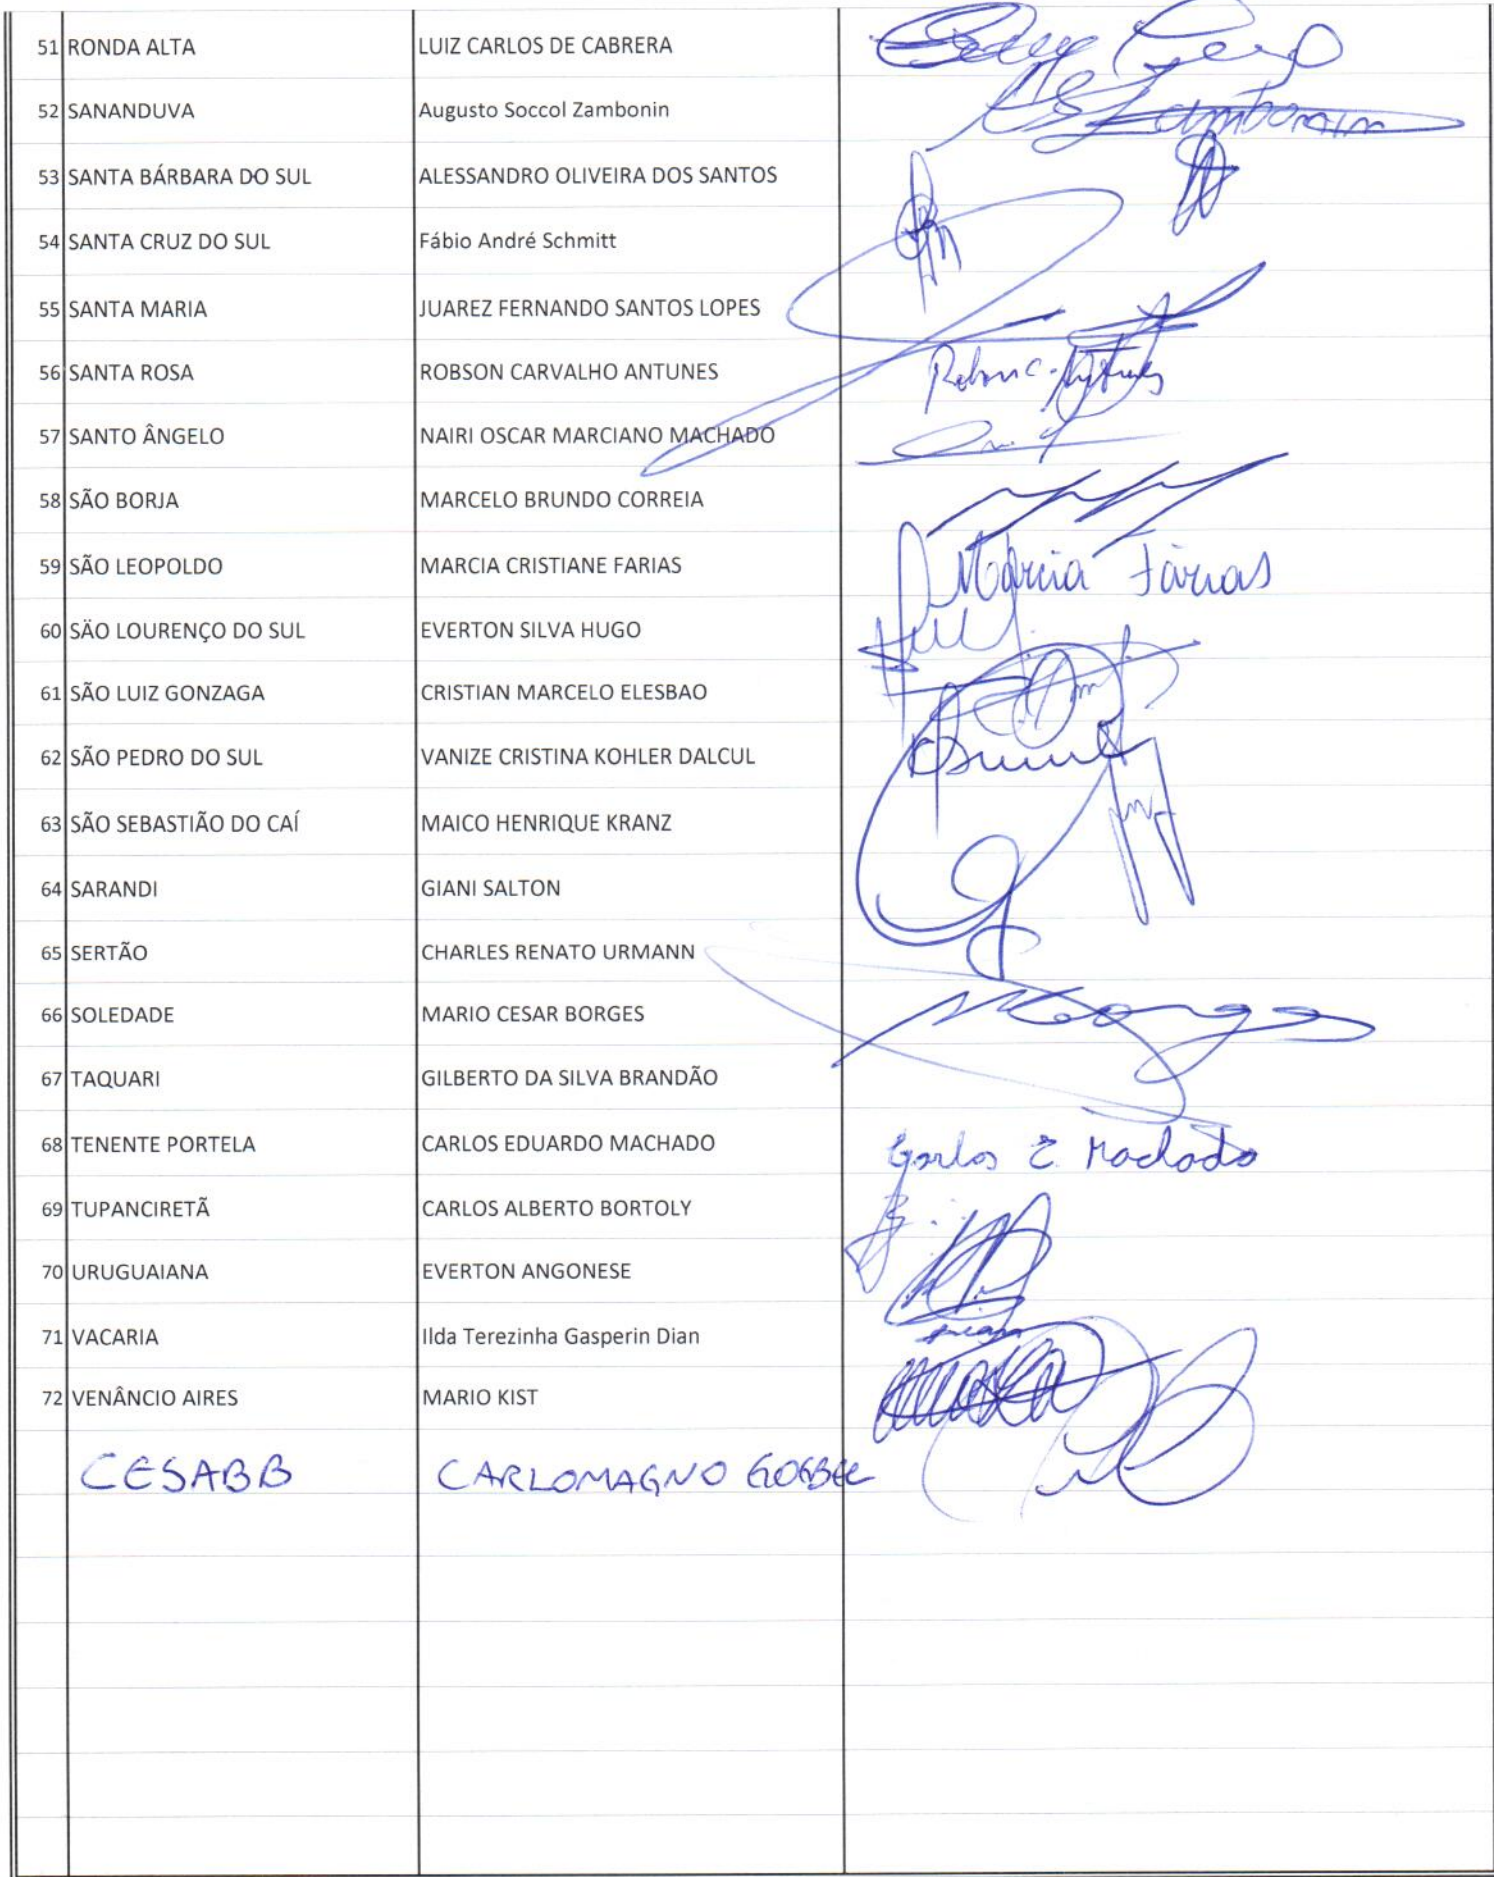 51 RONDA ALTA LUIZ CARLOS DE CABRERA
52 SANANDUVA Augusto Soccol Zambonin Zambonin
53 SANTA BÁRBARA DO SUL ALESSANDRO OLIVEIRA DOS SANTOS
54 SANTA CRUZ DO SUL Fábio André Schmitt
55 SANTA MARIA JUAREZ FERNANDO SANTOS LOPES
56 SANTA ROSA ROBSON CARVALHO ANTUNES
57 SANTO ÂNGELO NAIRI OSCAR MARCIANO MACHADO
58 SÃO BORJA MARCELO BRUNDO CORREIA
59 SÃO LEOPOLDO MARCIA CRISTIANE FARIAS Márcia Farias
60 SÄO LOURENÇO DO SUL EVERTON SILVA HUGO
61 SÃO LUIZ GONZAGA CRISTIAN MARCELO ELESBAO
62 SÃO PEDRO DO SUL VANIZE CRISTINA KOHLER DALCUL
63 SÃO SEBASTIÃO DO CAÍ MAICO HENRIQUE KRANZ
64 SARANDI GIANI SALTON
65 SERTÃO CHARLES RENATO URMANN
66 SOLEDADE MARIO CESAR BORGES
67 TAQUARI GILBERTO DA SILVA BRANDÃO
68 TENENTE PORTELA CARLOS EDUARDO MACHADO Carlos E. Machado
69 TUPANCIRETÃ CARLOS ALBERTO BORTOLY
70 URUGUAIANA EVERTON ANGONESE
71 VACARIA Ilda Terezinha Gasperin Dian
72 VENÂNCIO AIRES MARIO KIST
CESABB CARLOMAGNO